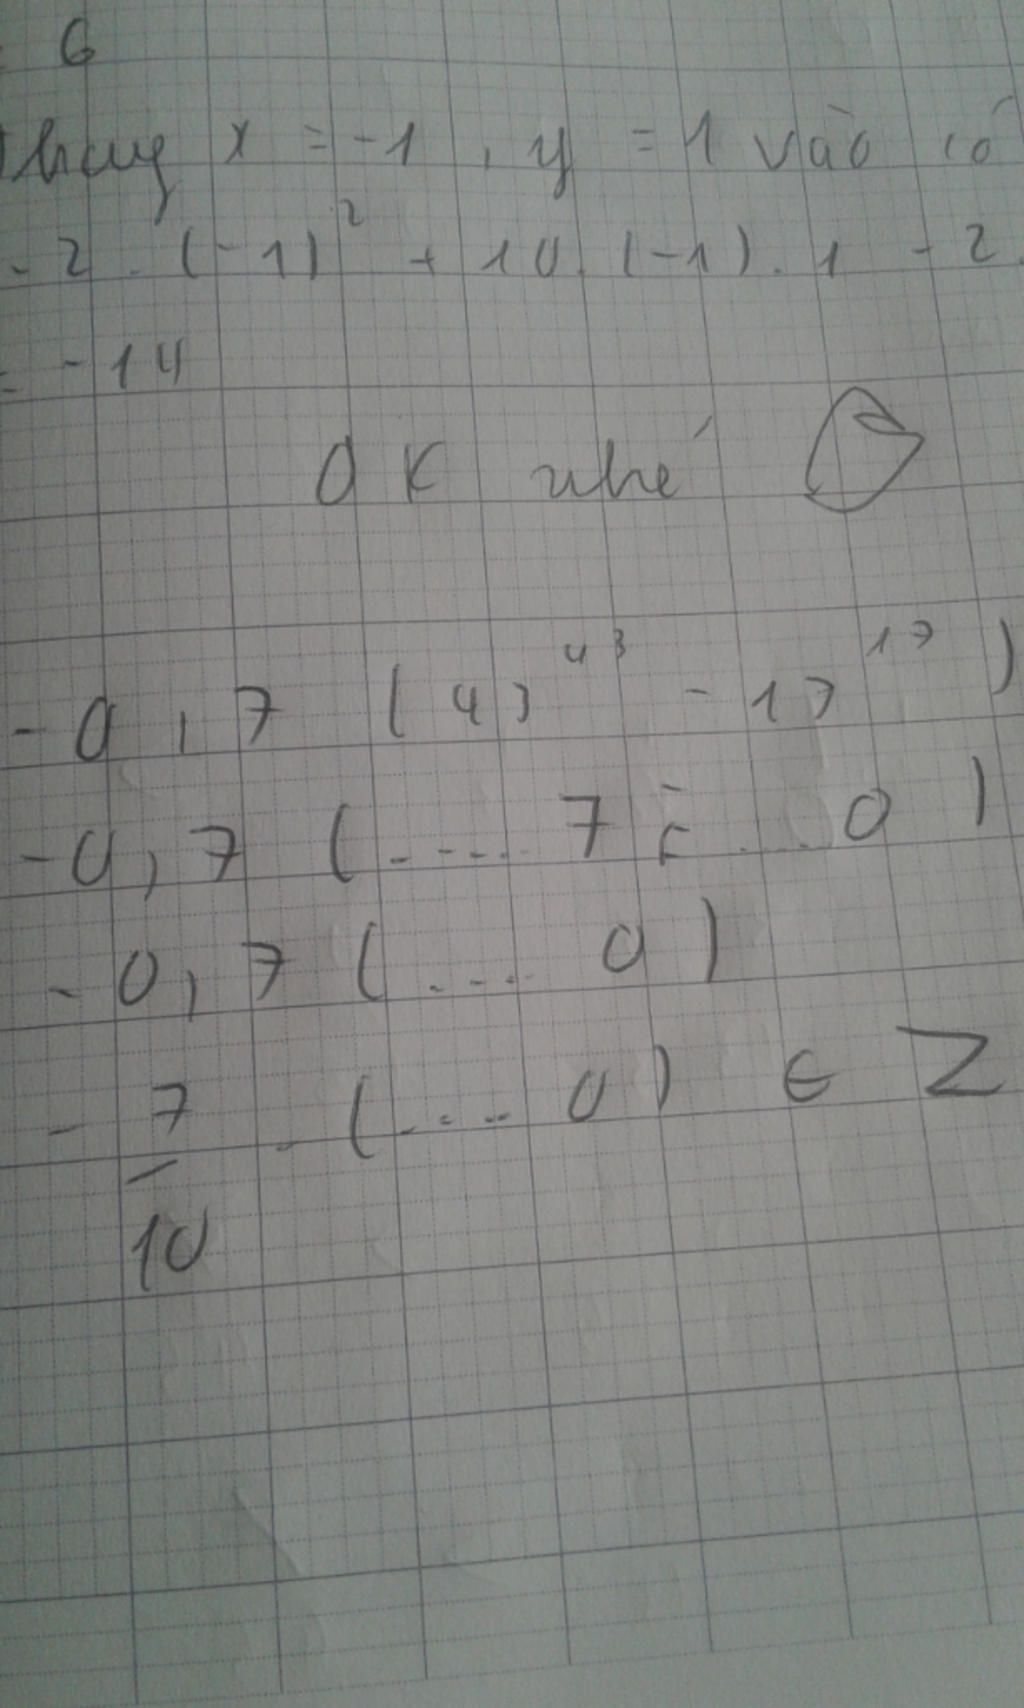 6
thay x = -1 , y = 1 vào có
- 2 . (-1)² + 10 . (-1) . 1 - 2
= -14
OK nhé
- 0,7 (43⁴³ - 17¹⁷)
- 0,7 (.... 7 - .... 0)
- 0,7 (.... 0)
- 7/10 . (.... 0) ∈ Z